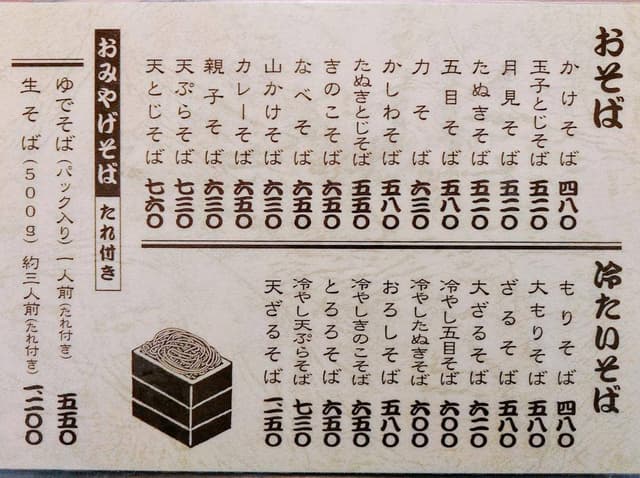 おそば
かけそば 四八〇
玉子とじそば 五二〇
月見そば 五二〇
たぬきそば 五二〇
五目そば 五八〇
力そば 六三〇
かしわそば 五八〇
たぬきとじそば 五五〇
きのこそば 六五〇
なべそば 六五〇
山かけそば 六三〇
カレーそば 六五〇
親子そば 六三〇
天ぷらそば 七三〇
天とじそば 七六〇
冷たいそば
もりそば 四八〇
大もりそば 五八〇
ざるそば 五八〇
大ざるそば 六二〇
冷やし五目そば 六〇〇
冷やしたぬきそば 六〇〇
おろしそば 五八〇
冷やしきのこそば 六五〇
とろろそば 六五〇
冷やし天ぷらそば 七三〇
天ざるそば 一一五〇
おみやげそば たれ付き
ゆでそば(パック入り) 一人前(たれ付き) 五五〇
生そば(500g) 約三人前(たれ付き) 一二〇〇